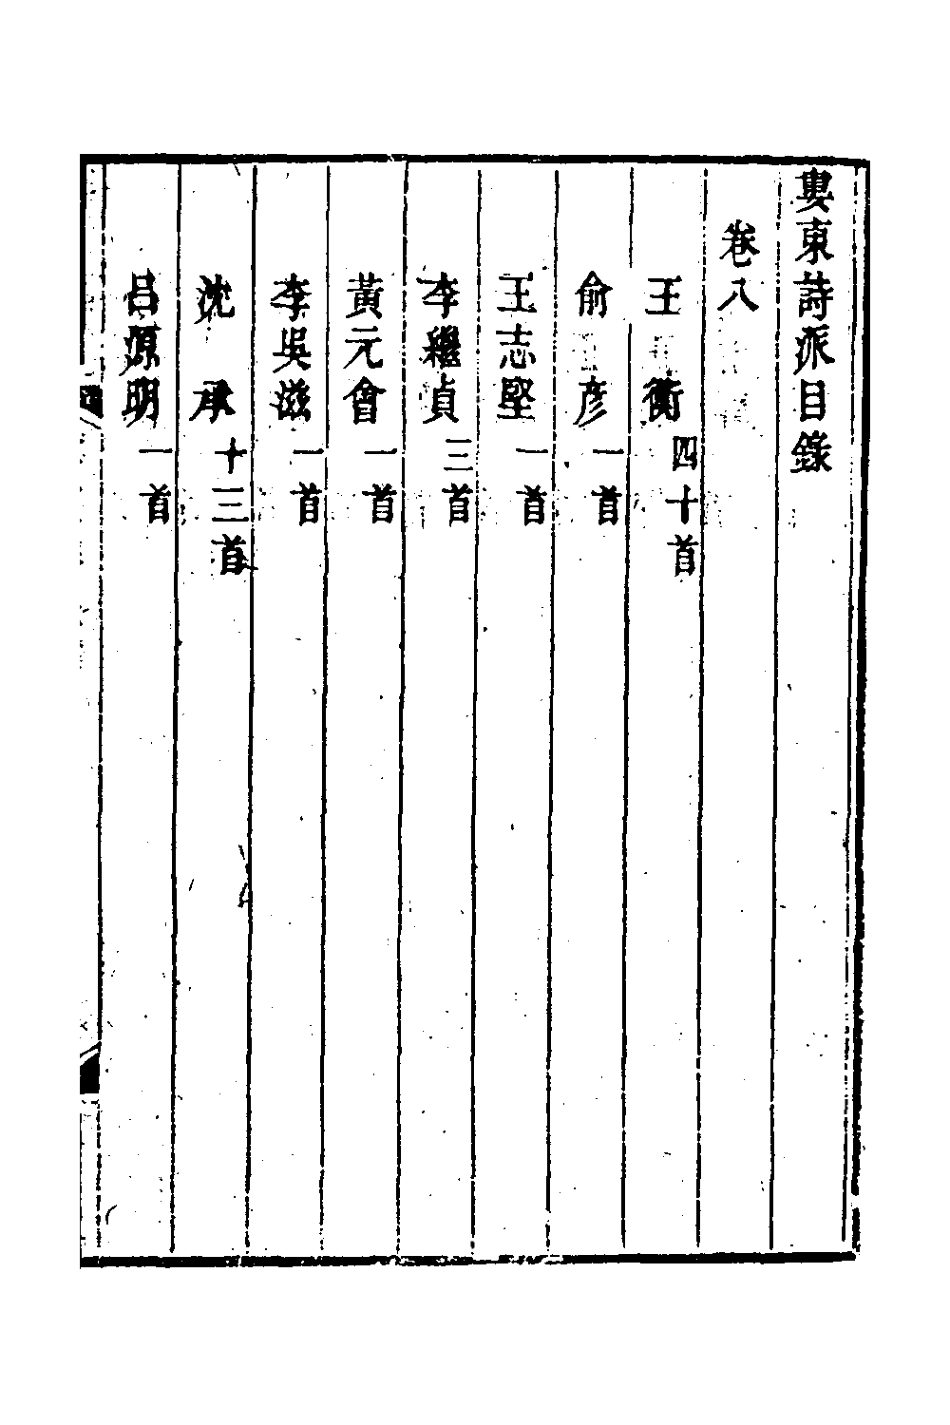 婁東詩派目錄
卷八
王衡四十首
俞彥一首
王志堅一首
李繼貞三首
黃元會一首
李吳滋一首
沈承十三首
呂源明一首